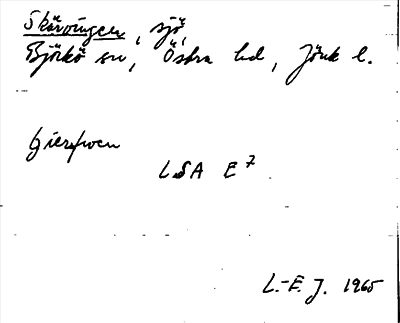 Skärvingen, sjö,
Björkö sn, Östra hd, Jönk l.
LSA E 7
L.-E. J. 1965